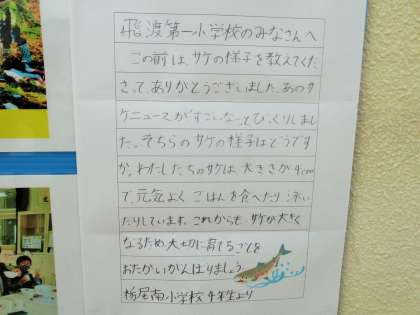 飛渡第一小学校のみなさんへ
この前は、サケの様子を教えてくだ
さって、ありがとうございました。あのサ
ケニュースがすごいなーってびっくりしまし
た。そちらのサケの様子はどうです
か。わたしたちのサケは、大きさが4cm
で、元気よくごはんを食べたり、泳い
だりしています。これからも、サケが大きく
なるため、大切に育てることを
おたがいがんばりましょう。
栃尾南小学校4年生より